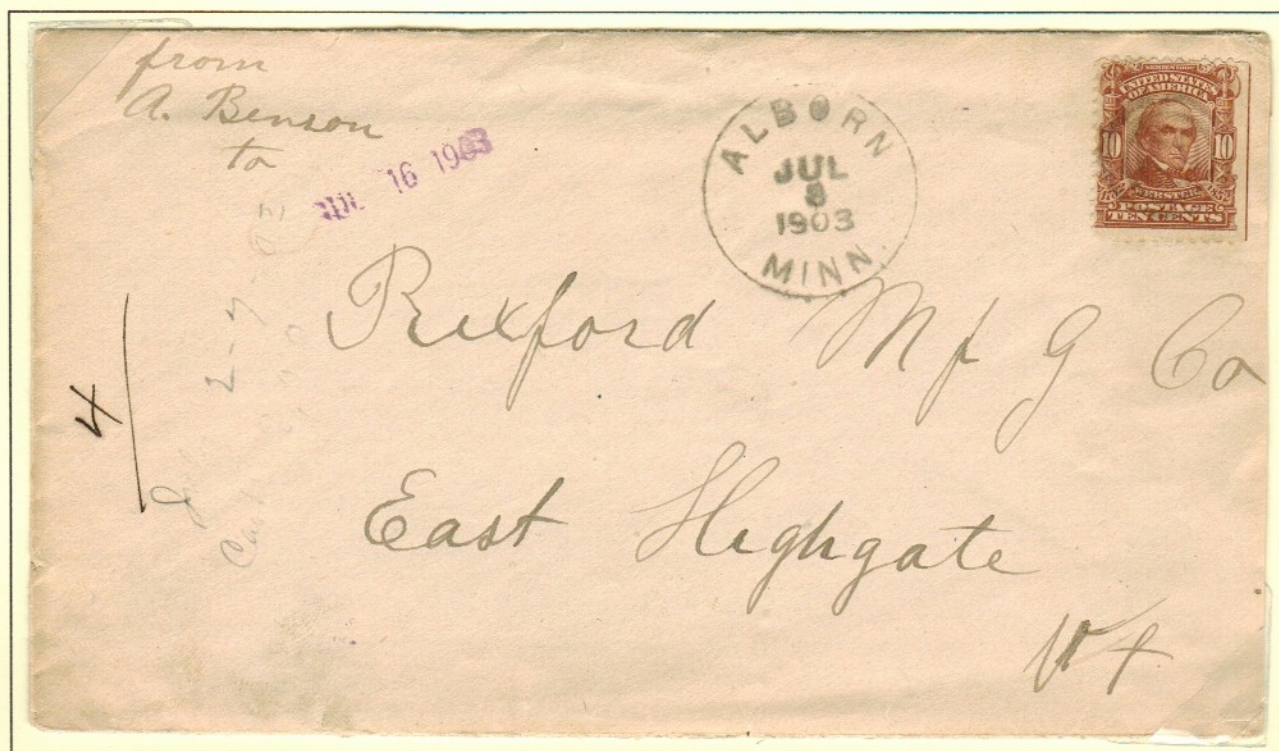 from
A. Benson
to
JUL 16 1903
ALBORN
JUL
8
1903
MINN.
UNITED STATES
OF AMERICA
10 10
WEBSTER
POSTAGE
TEN CENTS
Rixford Mfg Co
East Highgate
Vt
4